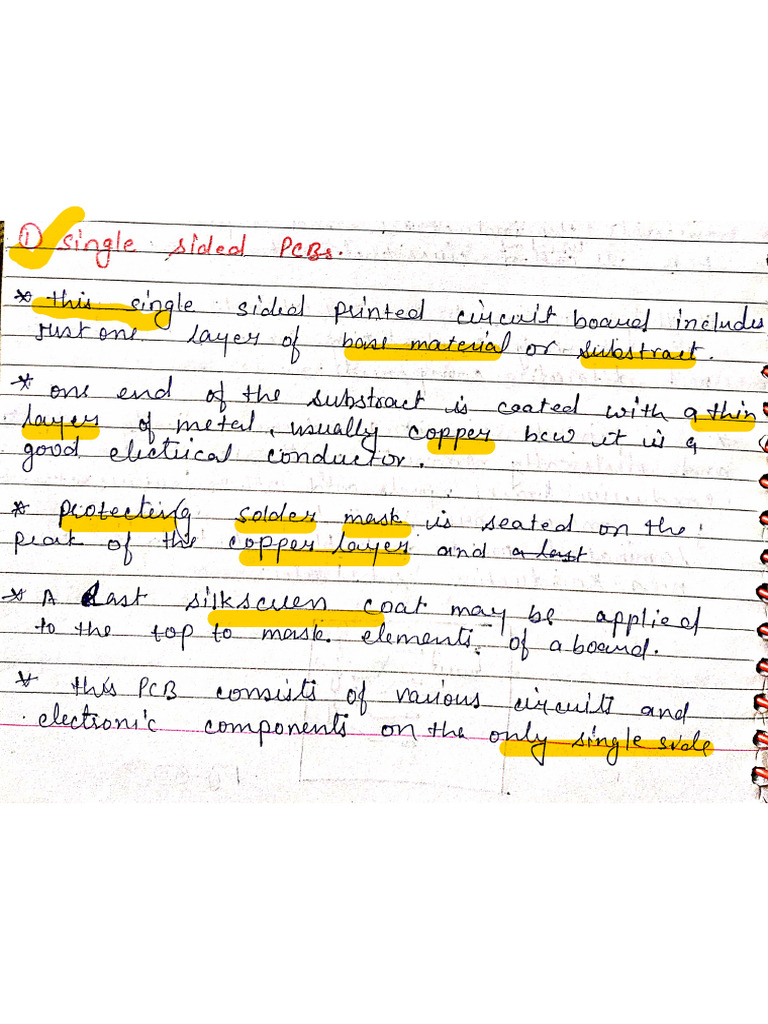 ① Single sided PCBs.
* this single sided printed circuit board includes
just one layer of base material or substract.
* one end of the substract is coated with a thin
layer of metal, usually copper bcw it is a
good electrical conductor.
* Protecting solder mask is seated on the
peak of the copper layer and a last
* A Last silkscreen coat may be applied
to the top to mask elements of a board.
* this PCB consists of various circuits and
electronic components on the only single side